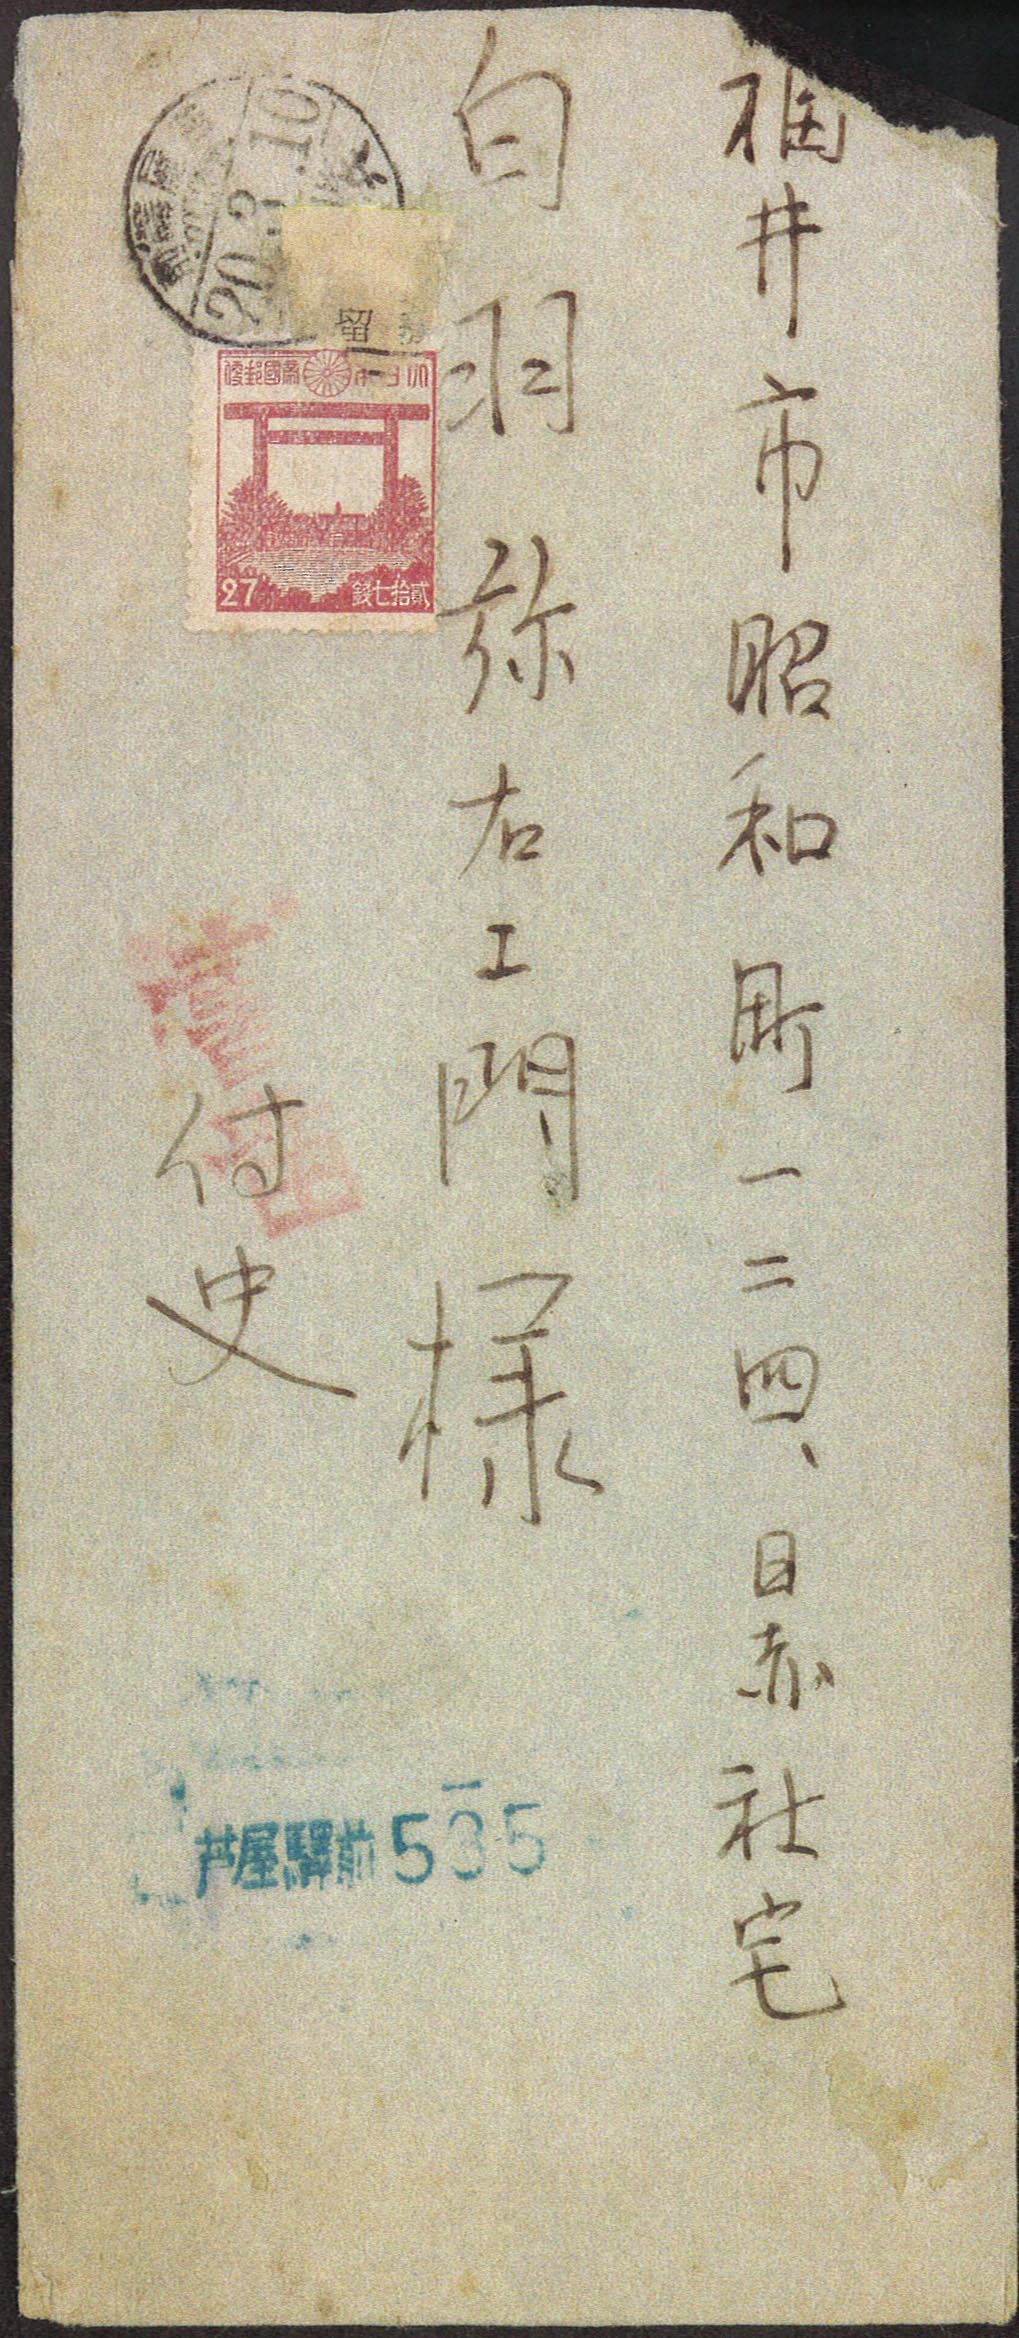 福井市昭和町一二四、日赤社宅
白羽弥右エ門様
付史
20.3.10
留
大日本帝國郵便
27
貳拾七錢
書留
芦屋驛前535